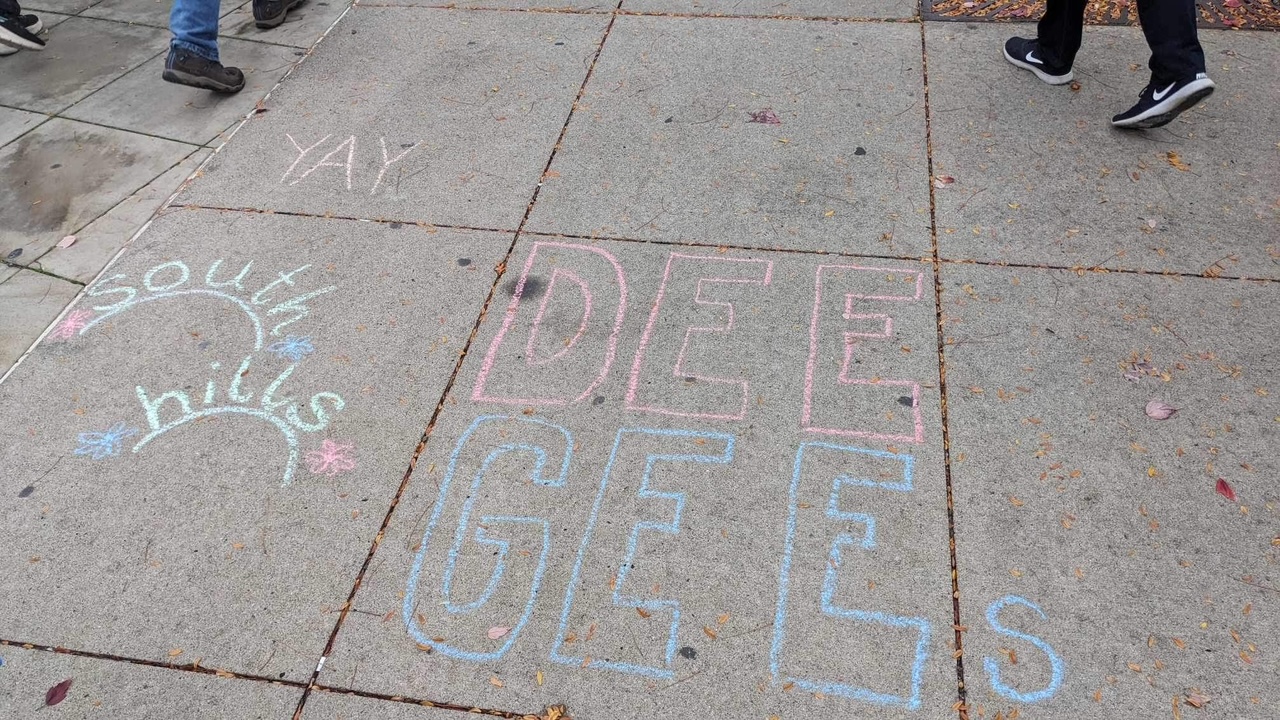 YAY
south
hills
DEE
GEEs